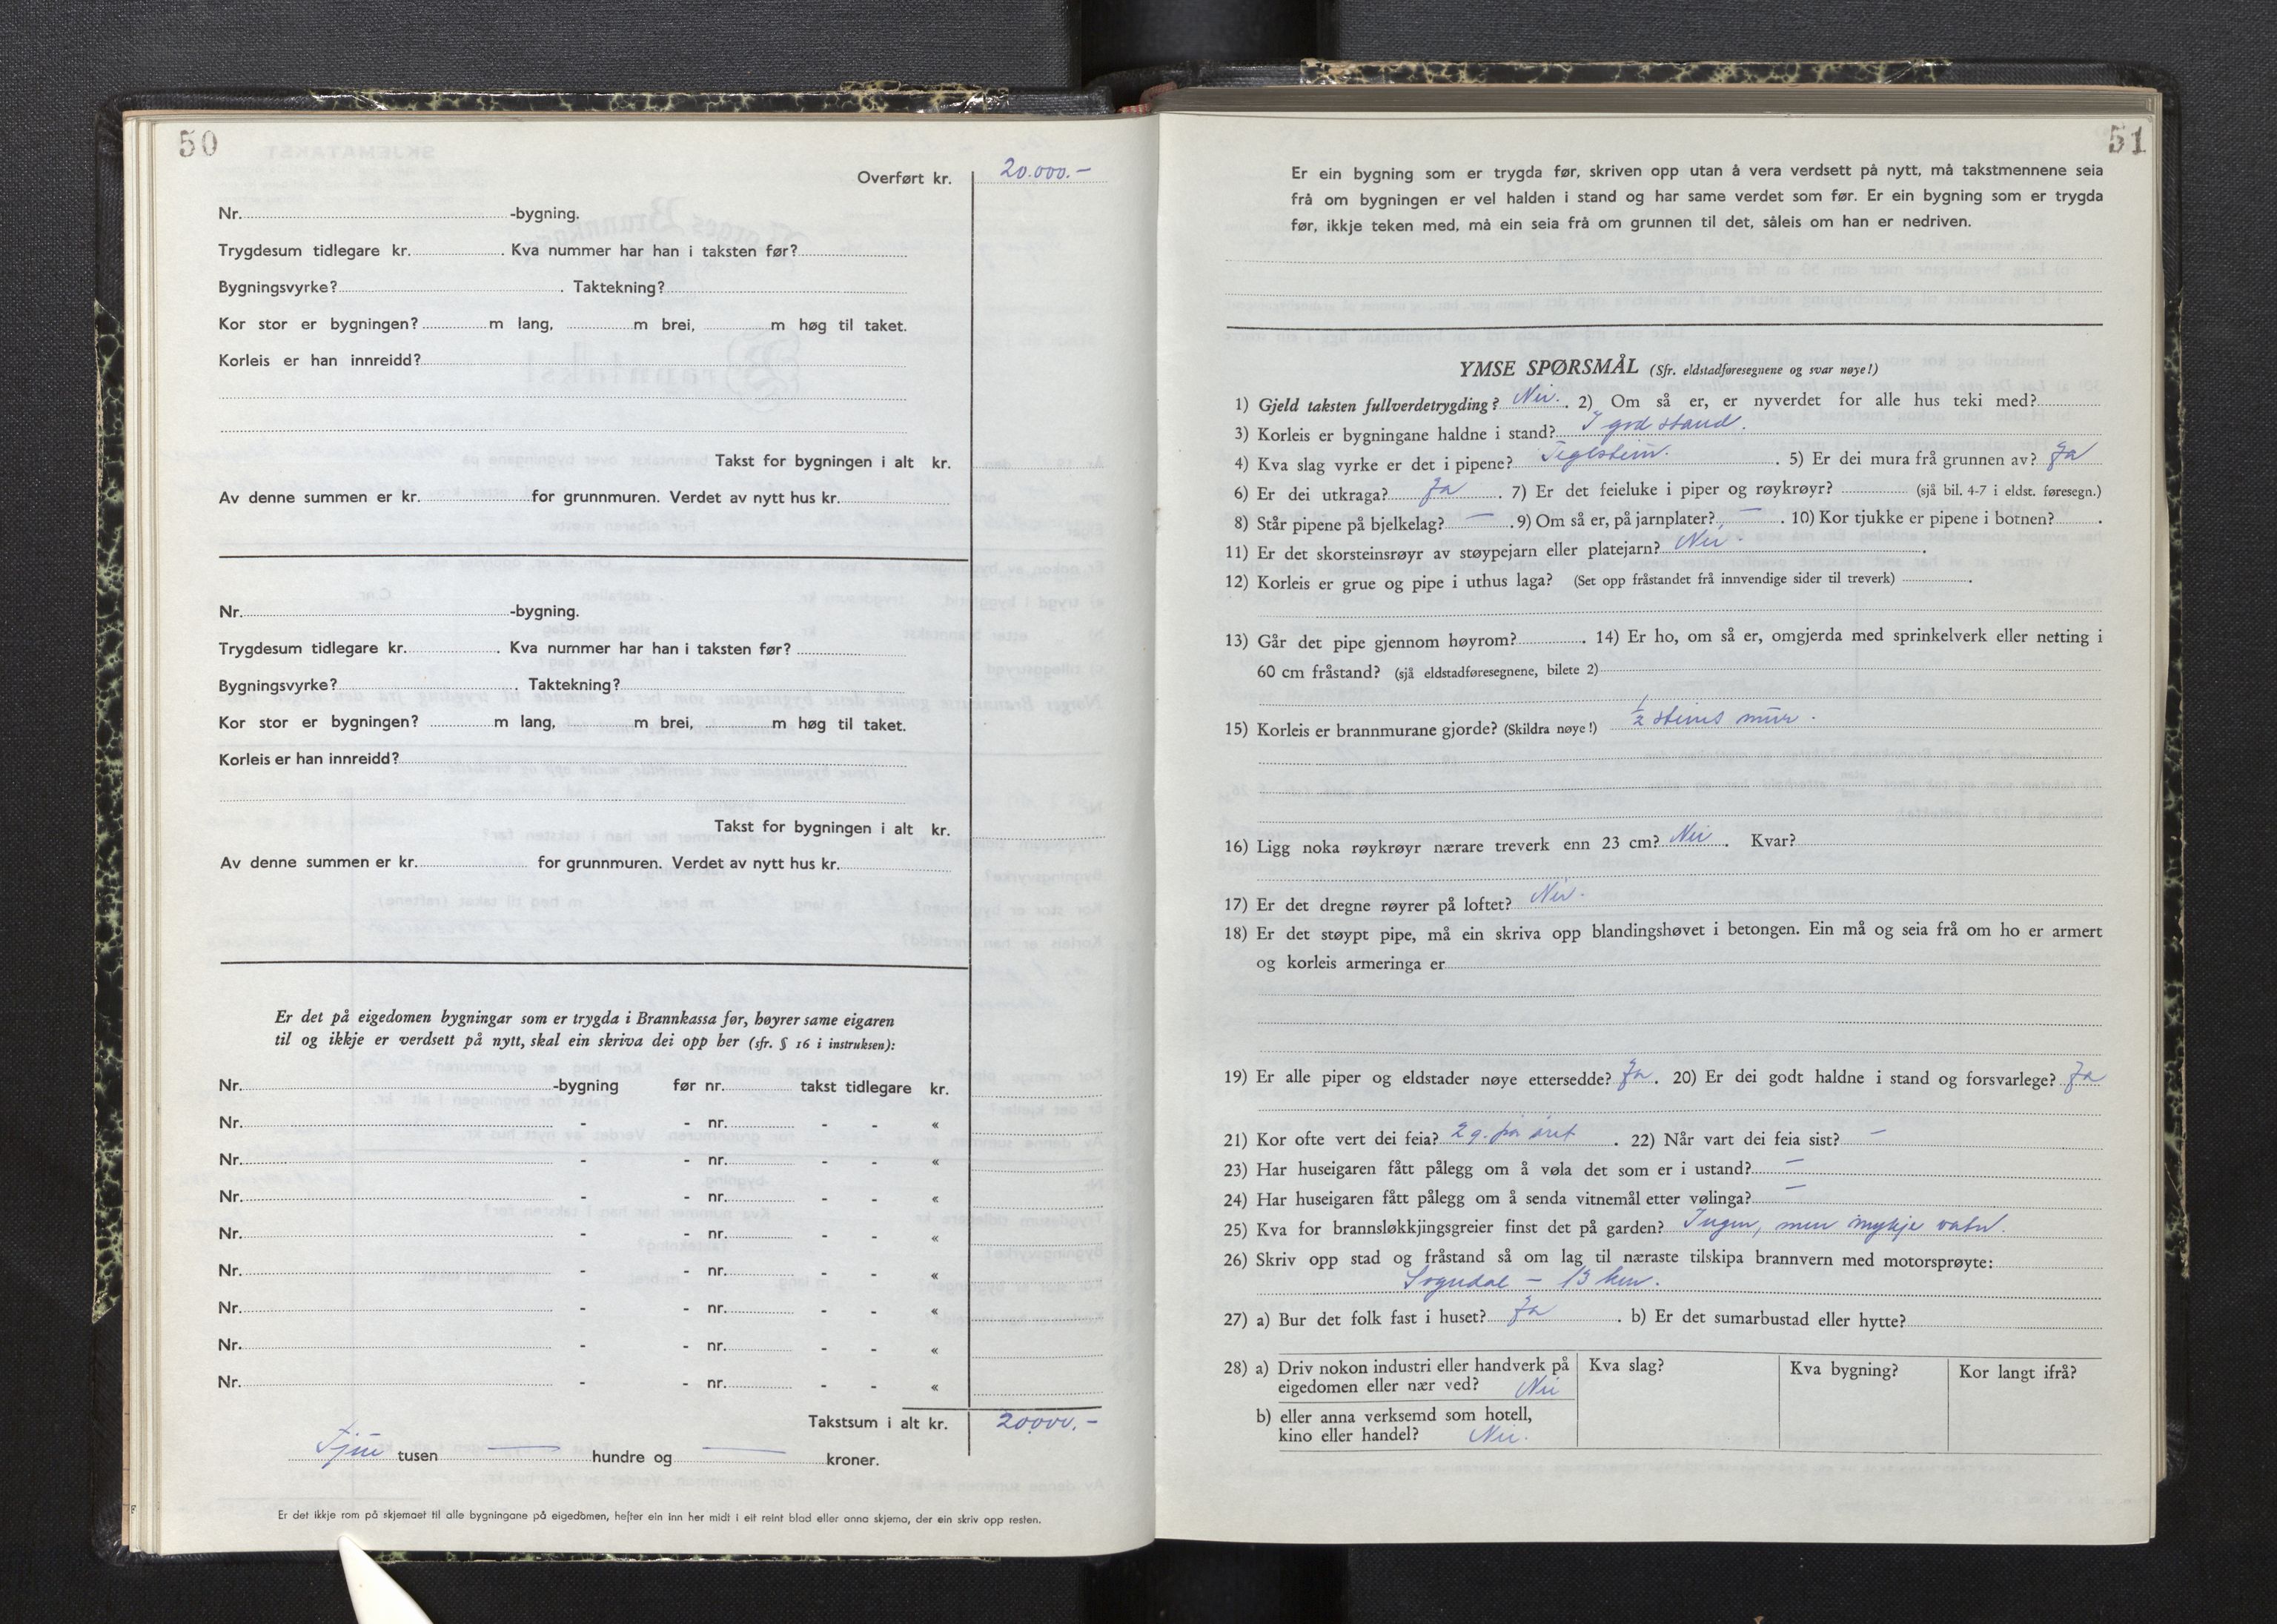 50
Overført kr. 20.000.-
Nr. -bygning.
Trygdesum tidlegare kr. . Kva nummer har han i taksten før?
Bygningsvyrke? . Taktekning?
Kor stor er bygningen? m lang, m brei, m høg til taket.
Korleis er han innreidd?
Takst for bygningen i alt kr.
Av denne summen er kr. for grunnmuren. Verdet av nytt hus kr.
Nr. -bygning.
Trygdesum tidlegare kr. . Kva nummer har han i taksten før?
Bygningsvyrke? . Taktekning?
Kor stor er bygningen? m lang, m brei, m høg til taket.
Korleis er han innreidd?
Takst for bygningen i alt kr.
Av denne summen er kr. for grunnmuren. Verdet av nytt hus kr.
Er det på eigedomen bygningar som er trygda i Brannkassa før, høyrer same eigaren
til og ikkje er verdsett på nytt, skal ein skriva dei opp her (sfr. § 16 i instruksen):
Nr. -bygning før nr. takst tidlegare kr.
Nr. - - nr. - - «
Nr. - - nr. - - «
Nr. - - nr. - - «
Nr. - - nr. - - «
Nr. - - nr. - - «
Nr. - - nr. - - «
Nr. - - nr. - - «
Nr. - - nr. - - «
Takstsum i alt kr. 20000.-
Tjue tusen — hundre og — kroner.
Er det ikkje rom på skjemaet til alle bygningane på eigedomen, hefter ein inn her midt i eit reint blad eller anna skjema, der ein skriv opp resten.
51
Er ein bygning som er trygda før, skriven opp utan å vera verdsett på nytt, må takstmennene seia
frå om bygningen er vel halden i stand og har same verdet som før. Er ein bygning som er trygda
før, ikkje teken med, må ein seia frå om grunnen til det, såleis om han er nedriven.
YMSE SPØRSMÅL (Sfr. eldstadføresegnene og svar nøye!)
1) Gjeld taksten fullverdetrygding? Nei. . 2) Om så er, er nyverdet for alle hus teki med?
3) Korleis er bygningane haldne i stand? I god stand.
4) Kva slag vyrke er det i pipene? Teglstein. . 5) Er dei mura frå grunnen av? Ja
6) Er dei utkraga? Ja . 7) Er det feieluke i piper og røykrøyr? (sjå bil. 4-7 i eldst. føresegn.)
8) Står pipene på bjelkelag? — . 9) Om så er, på jarnplater? — . 10) Kor tjukke er pipene i botnen? .
11) Er det skorsteinsrøyr av støypejarn eller platejarn? Nei - .
12) Korleis er grue og pipe i uthus laga? (Set opp fråstandet frå innvendige sider til treverk) .
13) Går det pipe gjennom høyrom? . 14) Er ho, om så er, omgjerda med sprinkelverk eller netting i
60 cm fråstand? (sjå eldstadføresegnene, bilete 2)
15) Korleis er brannmurane gjorde? (Skildra nøye!) 1/2 steins mur.
16) Ligg noka røykrøyr nærare treverk enn 23 cm? Nei . Kvar?
17) Er det dregne røyrer på loftet? Nei -
18) Er det støypt pipe, må ein skriva opp blandingshøvet i betongen. Ein må og seia frå om ho er armert
og korleis armeringa er
19) Er alle piper og eldstader nøye ettersedde? Ja . 20) Er dei godt haldne i stand og forsvarlege? Ja
21) Kor ofte vert dei feia? 2 g. for året . 22) Når vart dei feia sist? —
23) Har huseigaren fått pålegg om å vøla det som er i ustand? —
24) Har huseigaren fått pålegg om å senda vitnemål etter vølinga? —
25) Kva for brannsløkkjingsgreier finst det på garden? Ingen, men mykje vatn.
26) Skriv opp stad og fråstand så om lag til næraste tilskipa brannvern med motorsprøyte:
Sogndal - 13 km.
27) a) Bur det folk fast i huset? Ja . b) Er det sumarbustad eller hytte?
28) a) Driv nokon industri eller handverk på
eigedomen eller nær ved? Nei
Kva slag?
Kva bygning?
Kor langt ifrå?
b) eller anna verksemd som hotell,
kino eller handel? Nei.